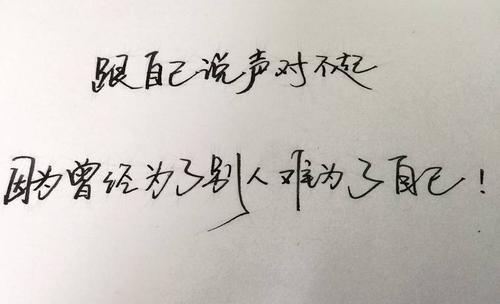 跟自己说声对不起
因为曾经为了别人难为了自己！